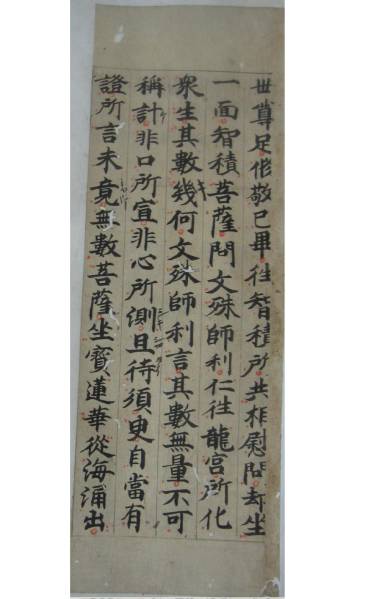 世尊足修敬已畢往智積所共相慰問却坐
一面智積菩薩問文殊師利仁往龍宮所化
衆生其數幾何文殊師利言其數無量不可
稱計非口所宣非心所測且待須臾自當有
證所言未竟無數菩薩坐寶蓮華從海涌出